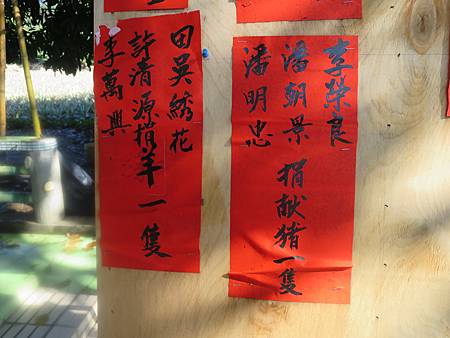 李榮良
潘朝景 捐献猪一隻
潘明忠
田吳綉花
許清源捐羊一隻
李萬興